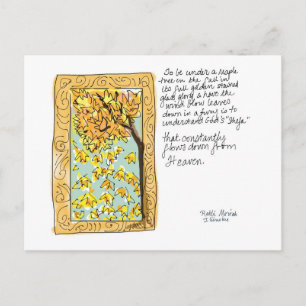 To be under a maple
tree in the fall in
its full golden stained
glass glory & have the
wind blow leaves
down in a furvi is to
understand God's "Shefa"
that constantly
flows down from
Heaven.
Rabbi Moriah